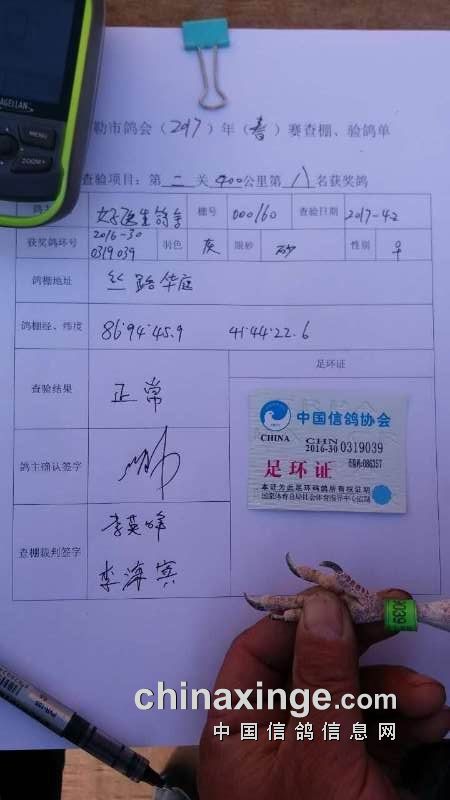 MAGELLAN
MENU
ZOOM
勒市鸽会(2017)年(春)赛查棚、验鸽单
查验项目:第二关400公里第八名获奖鸽
鸽主 好医生鸽舍 棚号 000160 查验日期 2017-4.2
获奖鸽环号 2016-30 0319039 羽色 灰 眼砂 砂 性别 ♀
鸽棚地址 丝路华庭
鸽棚经、纬度 86°94'45.9 41°44'22.6
足环证
查验结果 正常
中国信鸽协会
CHINA CHN
2016-30 0319039
足环证
鸽主确认签字
查棚裁判签字 李英峰
李海宾
0039
chinaxinge.com
中国信鸽信息网